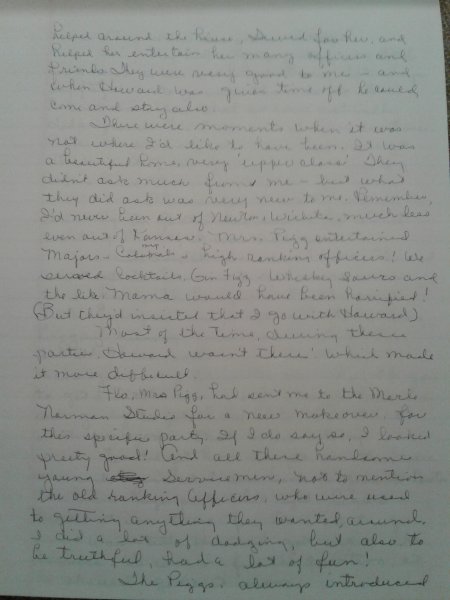 helped around the house, sewed for her, and
helped her entertain her many officers and
friends. They were very good to me – and
when Howard was given time off he could
come and stay also.
There were moments when it was
not where I'd like to have been. It was
a beautiful home, very "upper class". They
didn't ask much from me – but what
they did ask was very new to me. Remember,
I'd never been out of Newton, Wichita, much less
even out of Kansas. Mrs. Pigg entertained
Majors – Colonels & high ranking officers! We
served cocktails, Gin Fizz – Whiskey Sours and
the like. Mama would have been horrified!
(But they'd insisted that I go with Howard)
Most of the time, during these
parties, Howard wasn't there! Which made
it more difficult.
Flo, Mrs Pigg, had sent me to the Merle
Norman Studio for a new makeover, for
this specific party. If I do say so, I looked
pretty good! And all these handsome
young servicemen, not to mention
the old ranking officers, who were used
to getting anything they wanted, around.
I did a lot of dodging, but also to
be truthful, had a lot of fun!
The Piggs, always introduced